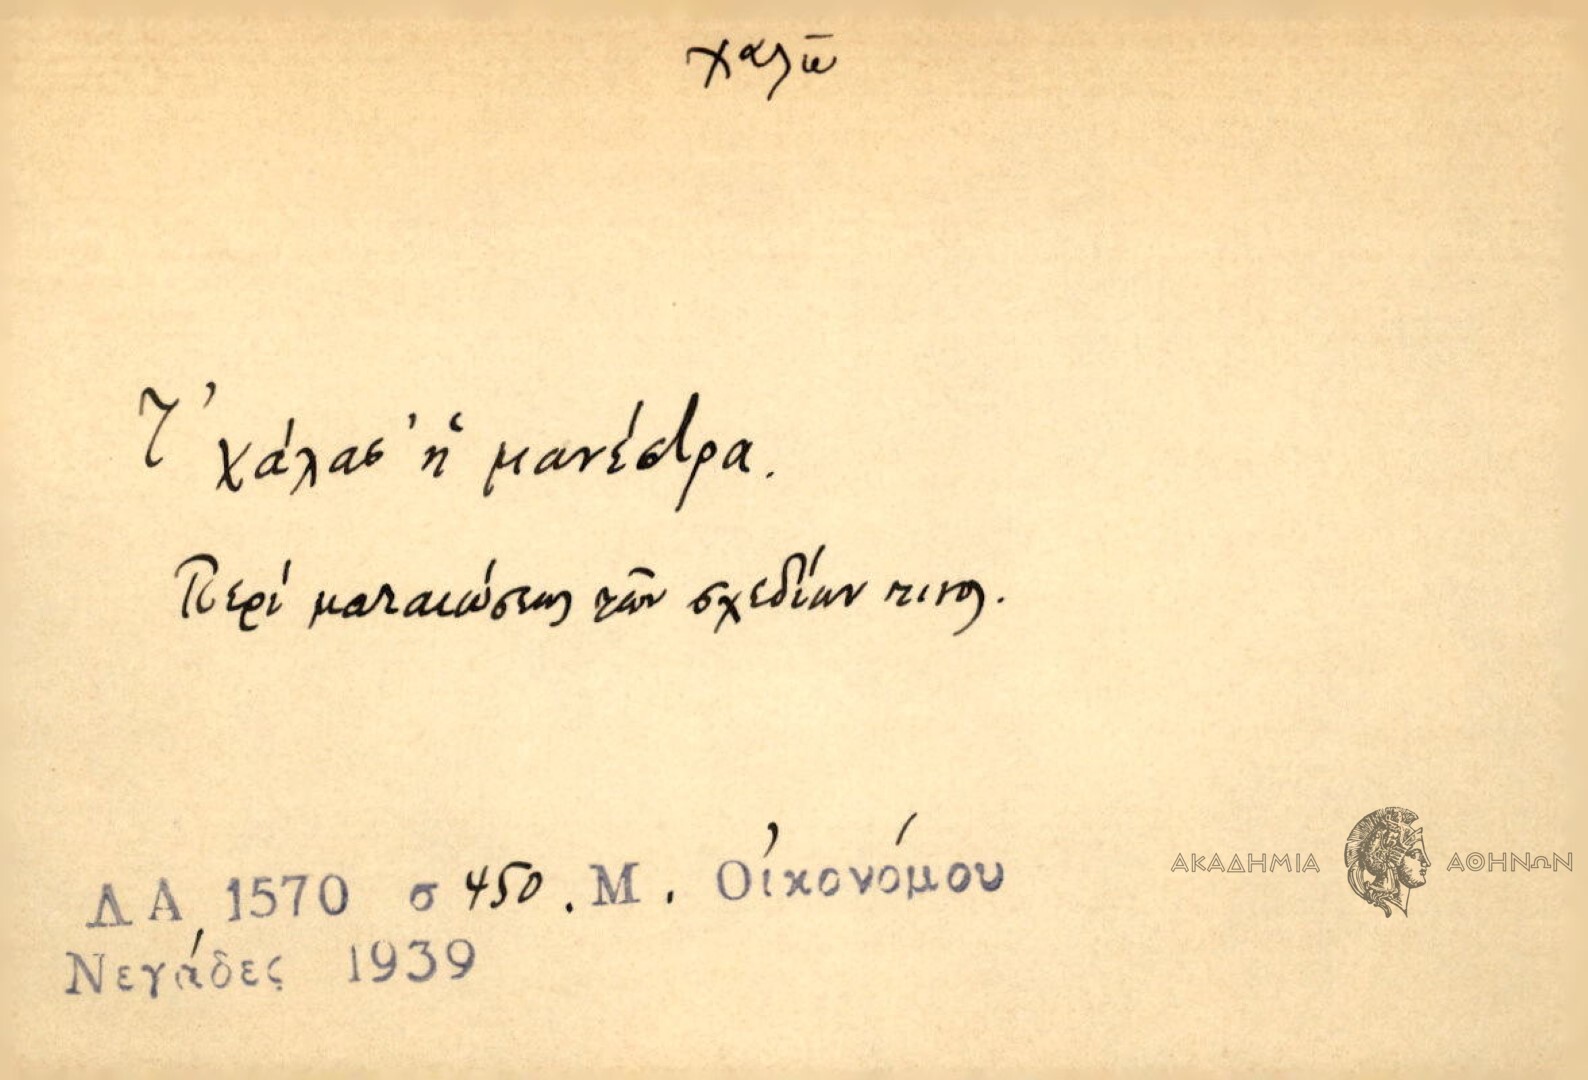 χαλῶ
Τ' χάλασ' ἡ μανέστρα.
Περί ματαιώσεως τῶν σχεδίων τινος.
ΛΑ 1570 σ 450. Μ. Οἰκονόμου
Νεγάδες 1939
ΑΚΑΔΗΜΙΑ ΑΘΗΝΩΝ